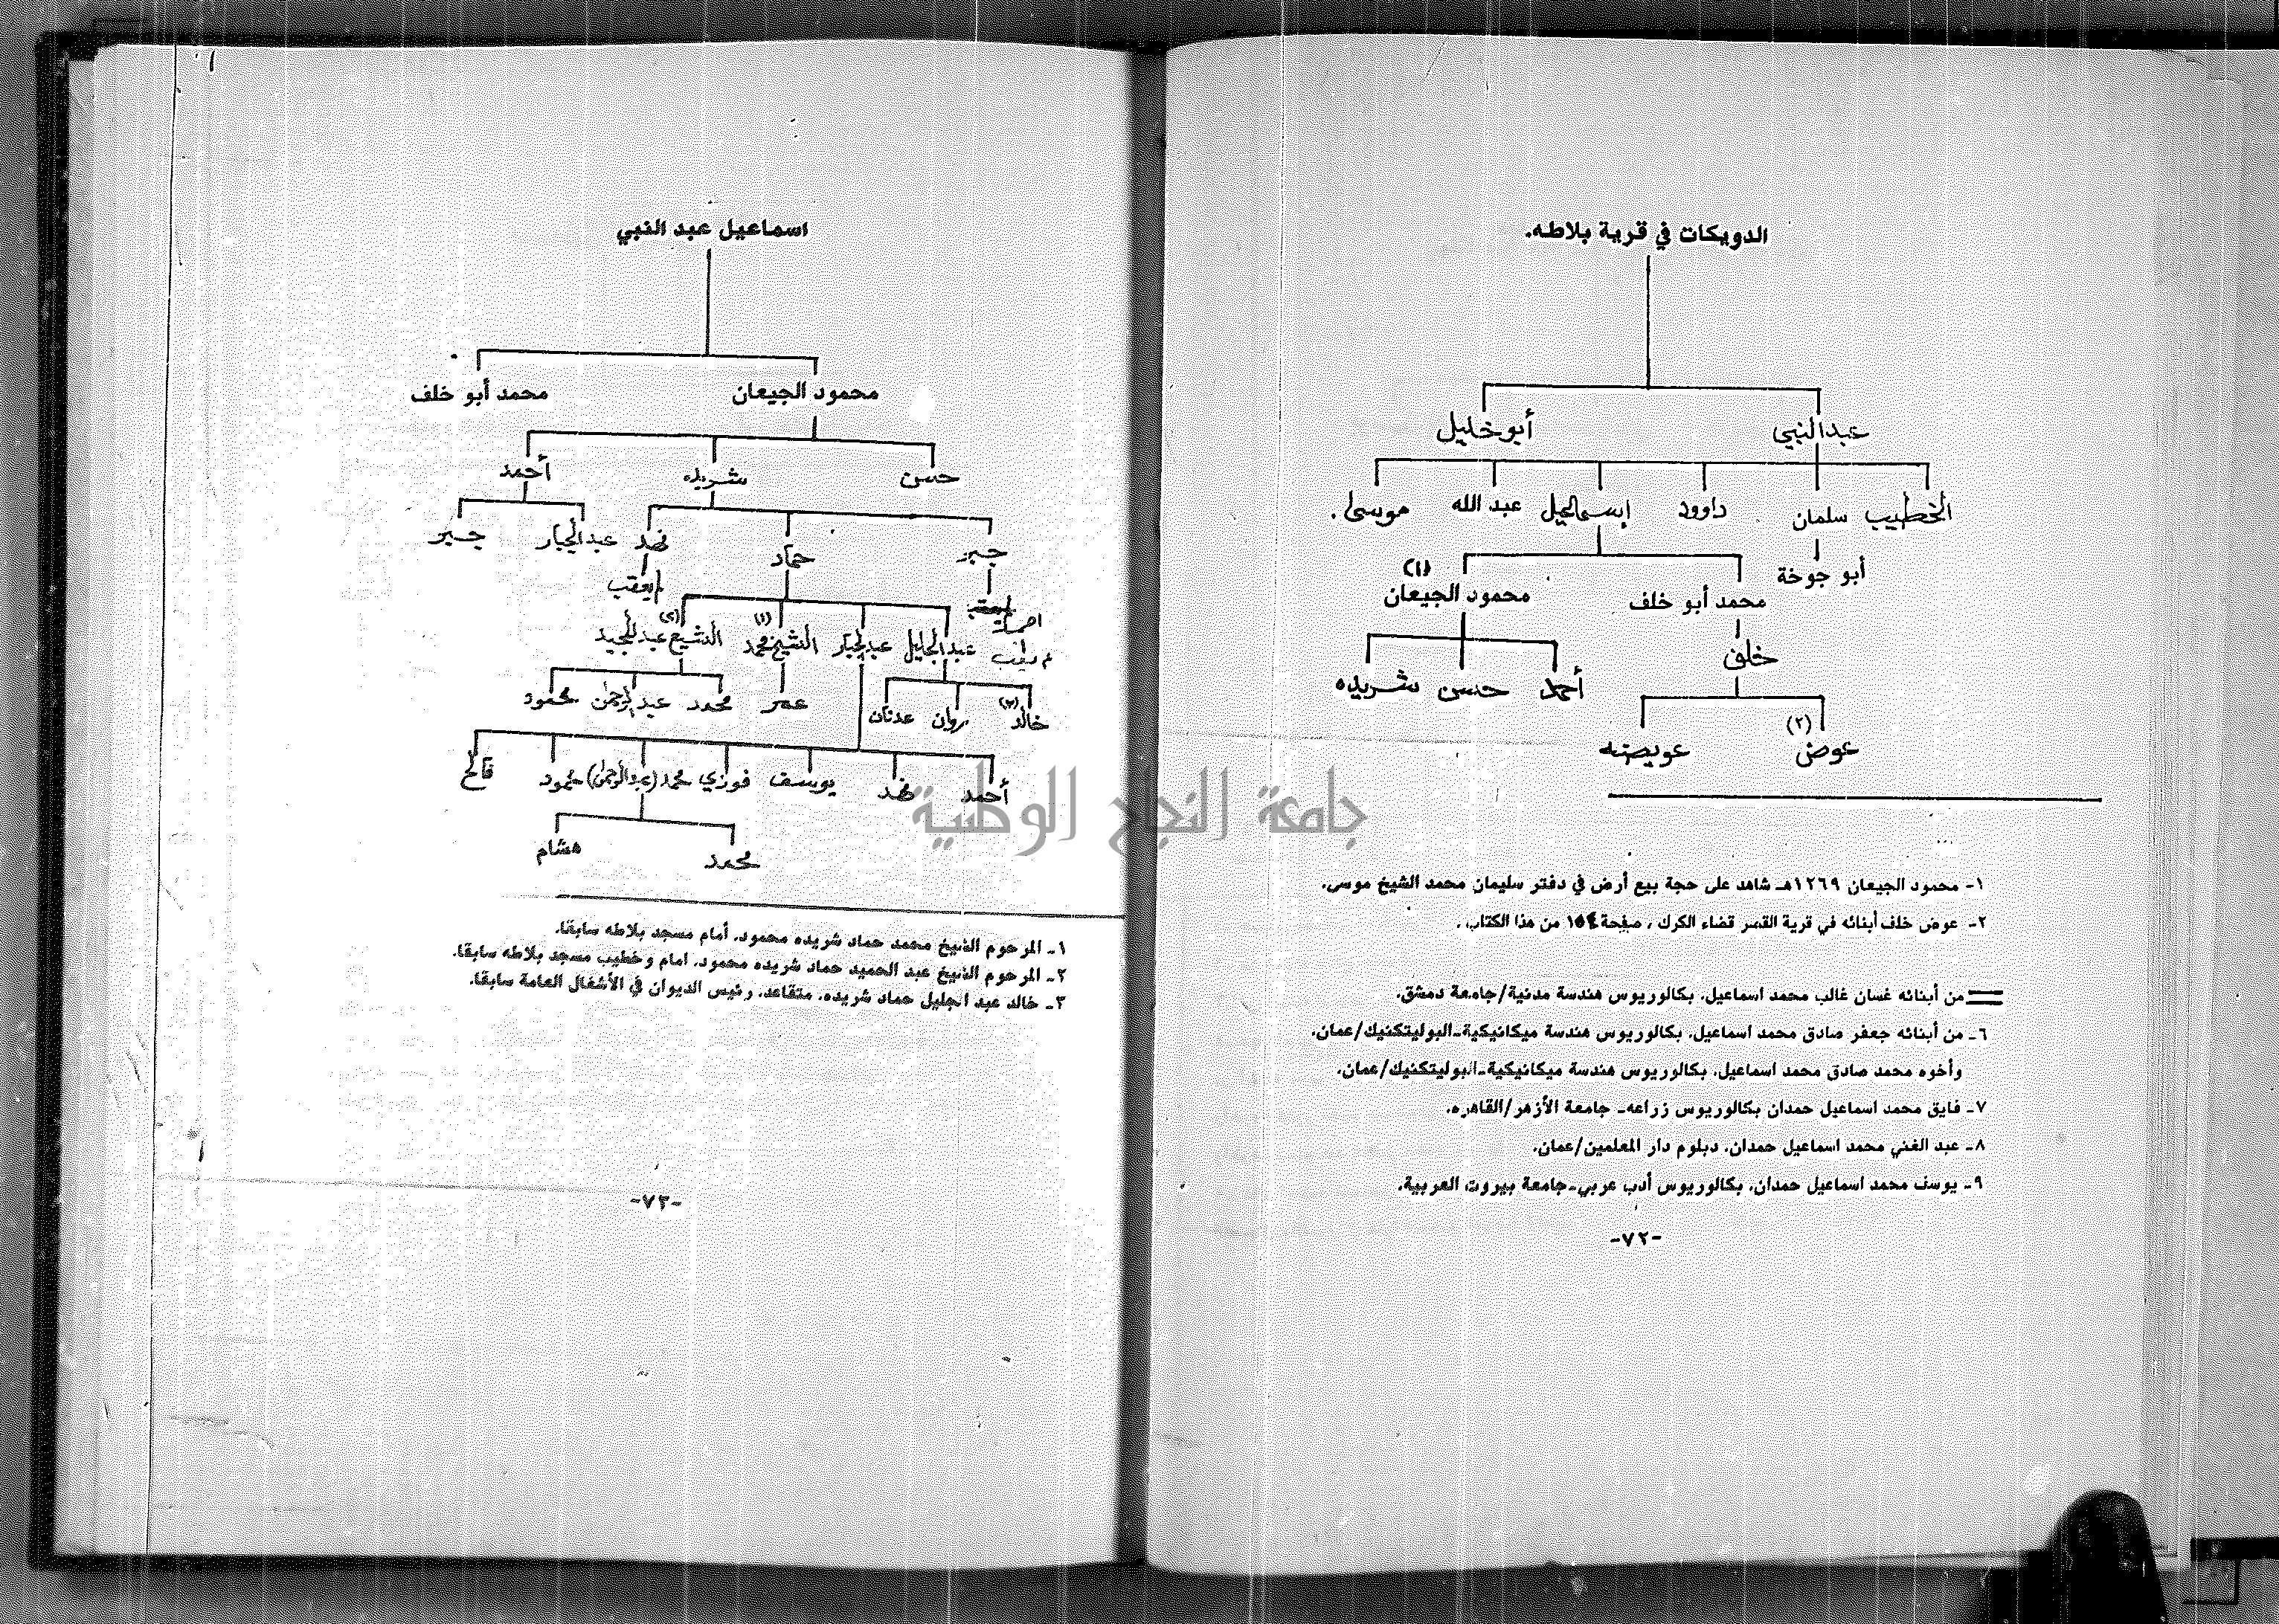 الدويكات في قرية بلاطه.
عبد النبي أبو خليل
الخطيب سلمان داوود إسماعيل عبد الله موسى.
أبو جوخة
محمد أبو خلف محمود الجيعان (١)
خلف
أحمد حسن شريده
عوض (٢) عويضه
١- محمود الجيعان ١٢٦٩هـ شاهد على حجة بيع أرض في دفتر سليمان محمد الشيخ موسى.
٢- عوض خلف أبنائه في قرية القصر قضاء الكرك ، صفحة ١٥٤ من هذا الكتاب .
من أبنائه غسان غالب محمد اسماعيل. بكالوريوس هندسة مدنية/جامعة دمشق.
٦- من أبنائه جعفر صادق محمد اسماعيل. بكالوريوس هندسة ميكانيكية-البوليتكنيك/عمان.
وأخوه محمد صادق محمد اسماعيل. بكالوريوس هندسة ميكانيكية-البوليتكنيك/عمان.
٧- فايق محمد اسماعيل حمدان بكالوريوس زراعه- جامعة الأزهر/القاهره.
٨- عبد الغني محمد اسماعيل حمدان. دبلوم دار المعلمين/عمان.
٩- يوسف محمد اسماعيل حمدان. بكالوريوس أدب عربي-جامعة بيروت العربية.
-٧٢-
اسماعيل عبد النبي
محمود الجيعان محمد أبو خلف
حسن شريده أحمد
جبر حماد فهد عبد الجبار جبر
عبد الجليل عبد الجبار الشيخ محمد (١) الشيخ (٢)
خالد (٣) عدنان عمر محمد عبد الرحمن محمود
أحمد فهد يوسف فوزي محمد (عبد الرحمن) محمود فالح
محمد هشام
١- المرحوم الشيخ محمد حماد شريده محمود. أمام مسجد بلاطه سابقا.
٢- المرحوم الشيخ عبد الحميد حماد شريده محمود. امام وخطيب مسجد بلاطه سابقا.
٣- خالد عبد الجليل حماد شريده. متقاعد. رئيس الديوان في الأشغال العامة سابقا.
-٧٣-
جامعة النجاح الوطنية